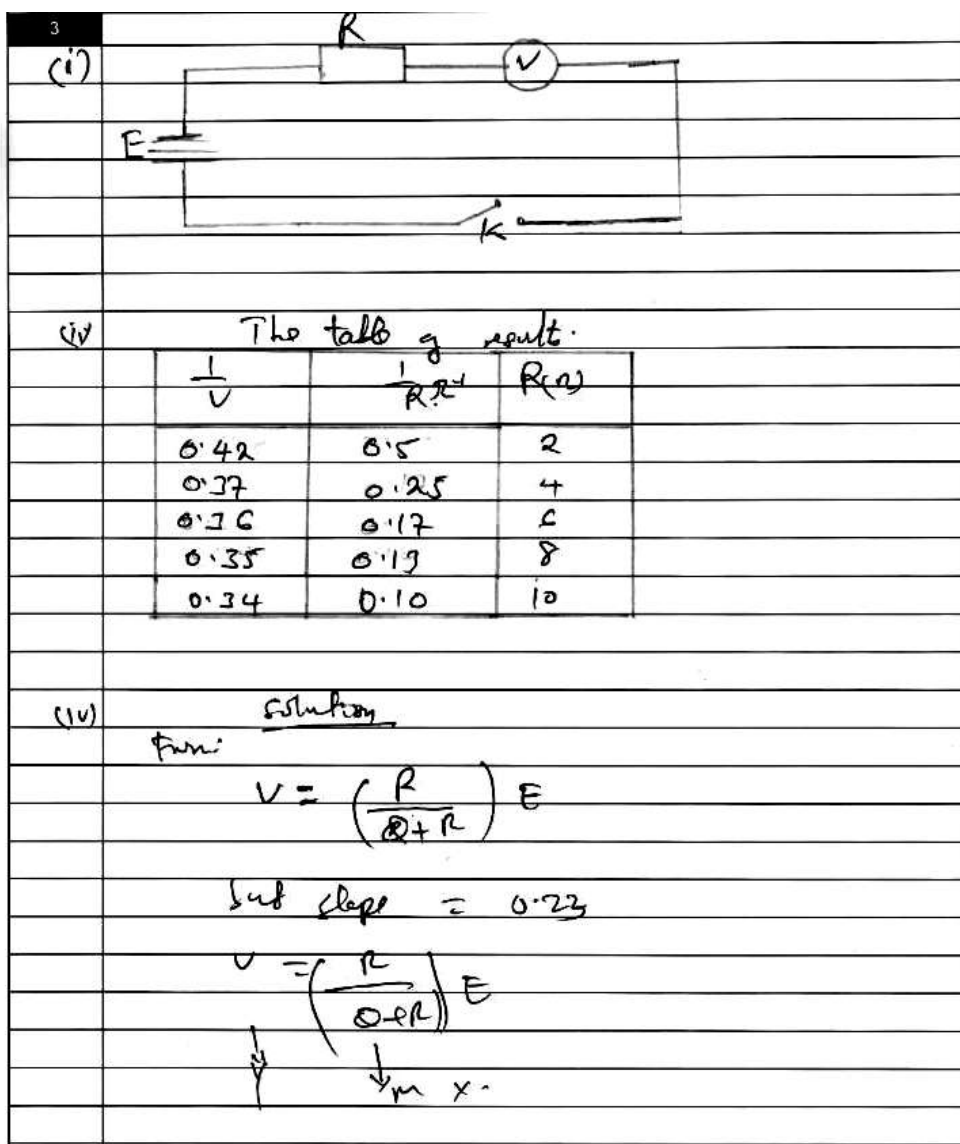 3
(i)
R
V
E
K
(iv) The table of result.
1/V 1/R Ω⁻¹ R(Ω)
0.42 0.5 2
0.37 0.25 4
0.36 0.17 6
0.35 0.13 8
0.34 0.10 10
(iv) solution
From:
V = (R / Q + R) E
but slope = 0.23
V = (R / Q + R) E
y m x.